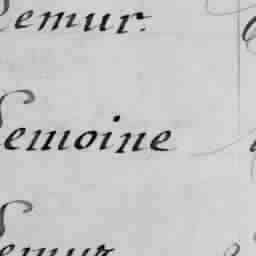 Lemur.
Lemoine
Lemur